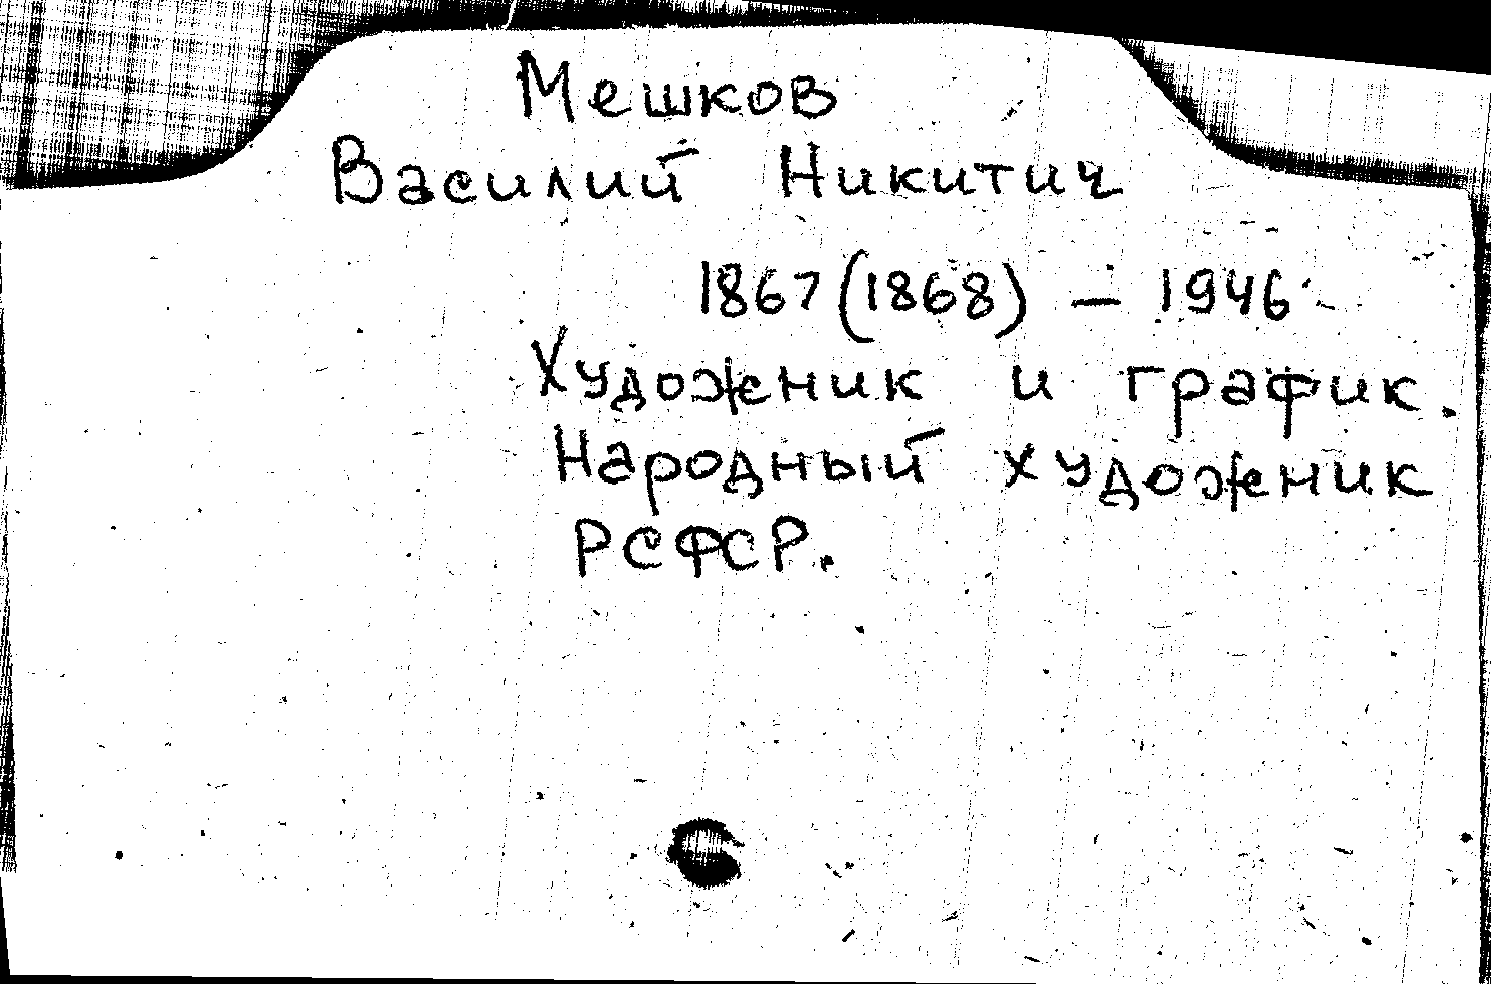 Мешков
Василий Никитич
1867 (1868) – 1946
Художник и график.
Народный художник
РСФСР.